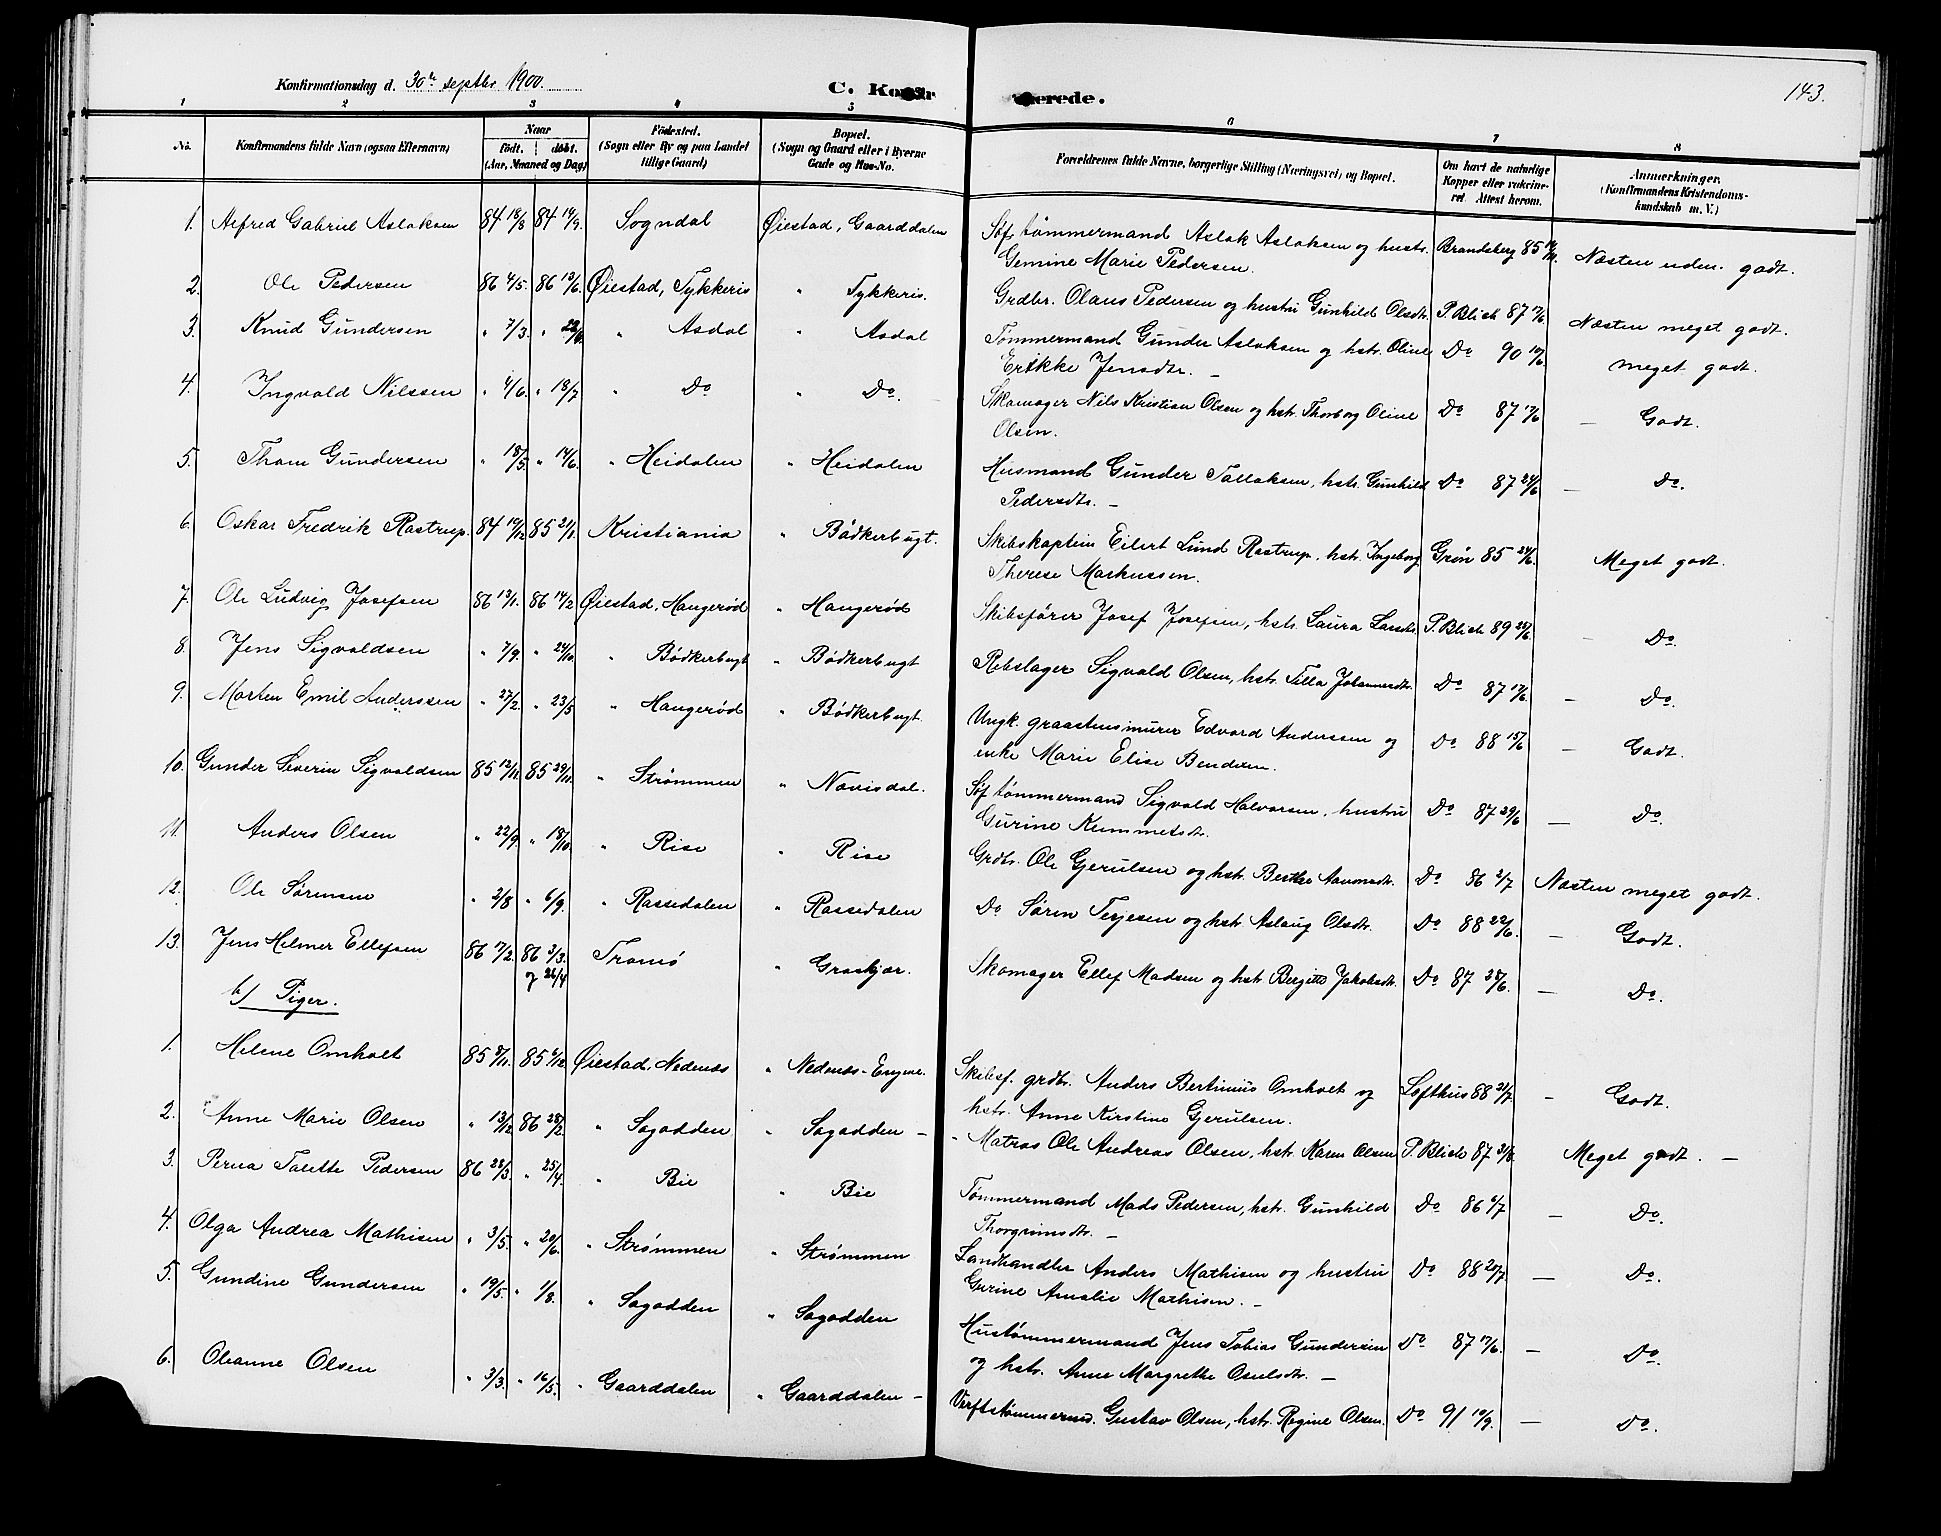 Konfirmationsdag d. 30te septbr 1900.
C. Konfir
merede.
143.
1 2 3 4 5 6 7 8
No. Konfirmandens fulde Navn (ogsaa Efternavn) Naar födt. döbt. (Aar, Maaned og Dag) Födested. (Sogn eller By og paa Landet tillige Gaard) Bopæl. (Sogn og Gaard eller i Byerne Gade og Hus-No. Forældrenes fulde Navne, borgerlige Stilling (Næringsvei) og Bopæl. Om havt de naturlige Kopper eller vakcineret. Attest herom. Anmærkninger. (Konfirmandens Kristendomskundskab m. V.)
1. Alfred Gabriel Aslaksen 84 18/8 84 14/9. Sogndal Øiestad, Gaarddalen Søf. tømmermand Aslak Aslaksen og hustr. Brandsberg 85 Næsten uden. godt.
Gemine Marie Pedersen.
2. Ole Pedersen 86 4/5. 86 13/6. Øiestad, Tykkeris " Tykkeris. Grdbr. Olaus Pedersen og hustru Gunhild Olsdtr. P. Blich 87 17/6. Næsten meget godt.
3. Knud Gundersen " 7/3. " " Asdal " Asdal Tømmermand Gunder Aslaksen og hstr. Oline Do 90 10/6. meget godt.
Erikke Jensdtr. –
4. Ingvald Nilssen " 4/6. " 18/7 " Do " Do. Skomager Nils Kristian Olsen og hstr. Thorborg Oline Do 87 17/6 – Godt.
Olsen.
5. Tham Gundersen " 18/5 " 14/6. " Heidalen " Heidalen Husmand Gunder Tallaksen, hstr. Gunhild Do 87 24/6 – Do.
Pedersdtr. –
6. Oskar Fredrik Rastrup. 84 19/12 85 21/1. Kristiania " Bødkerbugt. Skibskaptein Eilert Lund Rastrup, hstr. Ingeborg Grøn 85 24/6. Meget godt.
Therese Markussen.
7. Ole Ludvig Josefsen 86 13/1. 86 14/2 Øiestad, Haugerød " Haugerød Skibsfører Josef Josefsen, hstr. Laura Larsdtr. P. Blich 89 25/6. – Do.
8. Jens Sigvaldsen " 7/9. " 24/10. " Bødkerbugt " Bødkerbugt Rebslager Sigvald Olsen, hstr. Tilla Johannesdtr. Do 87 17/6. – Do.
9. Morten Emil Anderssen " 27/2. " 23/5 " Haugerød " Bødkerbugt. Ungk. graastensmurer Edvard Andersen og Do 88 15/6 – Godt.
enke Marie Elise Bendixen.
10. Gunder Severin Sigvaldsen 85 12/11. 85 29/11. " Strømmen " Nævisdal. Søf. tømmermand Sigvald Halvorsen, hustru Do 87 29/6 – Do.
Gurine Kummelsdtr.
11. Anders Olsen " 22/9. " 18/10. " Rise " Rise Grdbr. Ole Gjerulsen og hstr. Berthe Aamondtr. Do 86 2/7 Næsten meget godt.
12. Ole Sørensen " 2/8 " 6/9. " Rassedalen " Rassedalen Do Søren Terjesen og hstr. Aslaug Olsdtr. Do 88 22/6. – Godt.
13. Jens Helmer Ellefsen 86 7/2. 86 2/3. og 26/4 Tromø " Graskjær. Skomager Ellef Madsen og hstr. Bergitte Jakobsdtr. Do 87 28/6. – Do.
b) Piger.
1. Helene Omholt 85 8/11. 85 6/12. Øiestad, Nedenæs " Nedenæs-Engene. Skibsf. grdbr. Anders Bertinius Omholt og Lofthus 88 21/7 – Godt.
hstr. Anne Kirstine Gjerulsen.
2. Anne Marie Olsen " 13/12 86 28/2. " Sagodden " Sagodden – Matros Ole Andreas Olsen, hstr. Karen Olsen P. Blich 87 3/8. Meget godt. –
3. Perna Talette Pedersen 86 28/3. " 25/4. " Bie " Bie Tømmermand Mads Pedersen, hstr. Gunhild Do 86 6/7 – Do.
Thorgrimsdtr. –
4. Olga Andrea Mathisen " 3/5. " 20/6. " Strømmen " Strømmen Landhandler Anders Mathisen og hustru Do 88 20/7. – Do.
Gurine Amalie Mathisen. –
5. Gundine Gundersen " 19/5. " 1/8. " Sagodden " Sagodden Hustømmermand Jens Tobias Gundersen Do 87 17/6. – Do.
og hstr. Anne Margrethe Osulsdtr. –
6. Oleanne Olsen " 3/3. " 16/5. " Gaarddalen " Gaarddalen – Verftstømmermd. Gustav Olsen, hstr. Regine Olsen. Do 91 19/9. – Do.